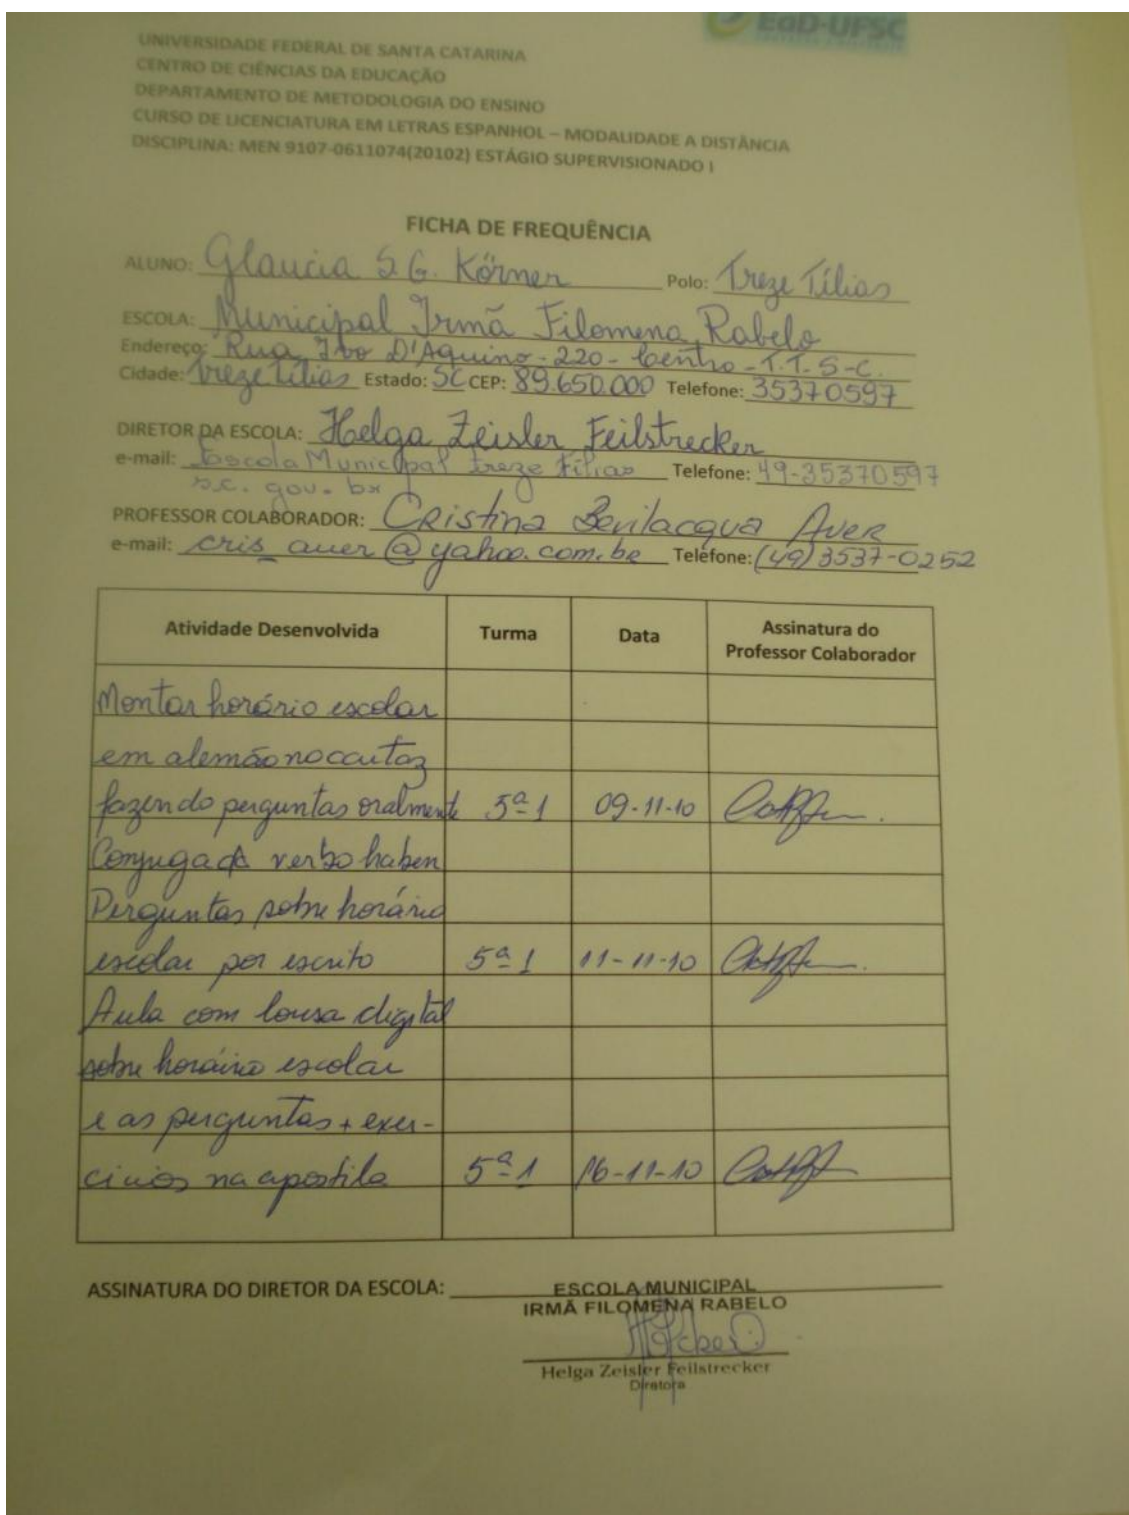 EaD-UFSC
UNIVERSIDADE FEDERAL DE SANTA CATARINA
CENTRO DE CIÊNCIAS DA EDUCAÇÃO
DEPARTAMENTO DE METODOLOGIA DO ENSINO
CURSO DE LICENCIATURA EM LETRAS ESPANHOL – MODALIDADE A DISTÂNCIA
DISCIPLINA: MEN 9107-0611074(20102) ESTÁGIO SUPERVISIONADO I
FICHA DE FREQUÊNCIA
ALUNO: Glaucia S. G. Körner Polo: Treze Tílias
ESCOLA: Municipal Irmã Filomena Rabelo
Endereço: Rua Ivo D'Aquino - 220 - Centro - T.T. S-C.
Cidade: Treze Tílias Estado: SC CEP: 89.650.000 Telefone: 35370597
DIRETOR DA ESCOLA: Helga Zeisler Feilstrecker
e-mail: Escola Municipal Treze Tílias Telefone: 49-35370597
s.c. gov. br
PROFESSOR COLABORADOR: Cristina Bevilacqua Auer
e-mail: cris_auer@yahoo.com.br Telefone: (49) 3537-0252
Atividade Desenvolvida Turma Data Assinatura do
Professor Colaborador
Montar horário escolar
em alemão no cartaz
fazendo perguntas oralmente 5ª 1 09-11-10
Conjugado verbo haben
Perguntas sobre horário
escolar por escrito 5ª 1 11-11-10
Aula com lousa digital
sobre horário escolar
e as perguntas + exer-
cicios na apostila 5ª 1 16-11-10
ASSINATURA DO DIRETOR DA ESCOLA:
ESCOLA MUNICIPAL
IRMÃ FILOMENA RABELO
Helga Zeisler Feilstrecker
Diretora